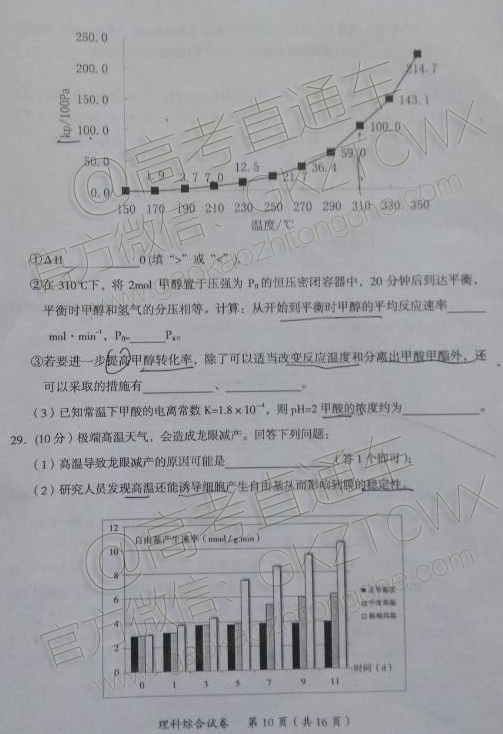 250.0
200.0
150.0
100.0
50.0
0.0
kp/100Pa
1.9 3.7 7.0 12.5 21.7 36.4 59.0 100.0 143.1 214.7
150 170 190 210 230 250 270 290 310 330 350
温度/℃
①ΔH 0(填“>”或“<”)
②在310℃下，将2mol甲醇置于压强为P₀的恒压密闭容器中，20分钟后到达平衡，
平衡时甲醇和氢气的分压相等。计算：从开始到平衡时甲醇的平均反应速率
mol·min⁻¹，P₀= Pa。
③若要进一步提高甲醇转化率，除了可以适当改变反应温度和分离出甲酸甲酯外，还
可以采取的措施有 、 。
(3) 已知常温下甲酸的电离常数K=1.8×10⁻⁴，则pH=2甲酸的浓度约为 。
29. (10分) 极端高温天气，会造成龙眼减产。回答下列问题：
(1) 高温导致龙眼减产的原因可能是 (答1个即可)；
(2) 研究人员发现高温还能诱导细胞产生自由基从而影响到膜的稳定性。
自由基产生速率 (nmol/g.min)
12
10
8
6
4
2
0
正常温度
中度高温
极端高温
0 1 3 5 7 9 11
时间 (d)
理科综合试卷 第10页 (共16页)
@高考直通车
官方微信：GKZTCWX
www.gaokaozhitongche.com
@高考直通车
官方微信：GKZTCWX
www.gaokaozhitongche.com